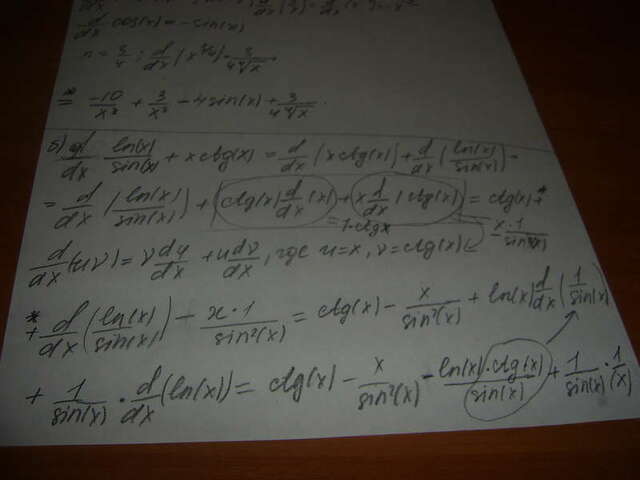 d/dx cos(x) = -sin(x)
n = 3/4; d/dx (x^(3/4)) = 3/(4 ⁴√x)
* = -10/x³ + 3/x² - 4 sin(x) + 3/(4 ⁴√x).
б) d/dx ln(x)/sin(x) + x ctg(x) = d/dx (x ctg(x)) + d/dx (ln(x)/sin(x)) =
= d/dx (ln(x)/sin(x)) + (ctg(x) d/dx (x) + x d/dx (ctg(x)) = ctg(x) + *
= 1·ctgx
= x·1/sin²(x)
d/dx (uv) = v du/dx + u dv/dx, где u=x, v=ctg(x)
* + d/dx (ln(x)/sin(x)) - x·1/sin²(x) = ctg(x) - x/sin²(x) + ln(x) d/dx (1/sin(x))
+ 1/sin(x) · d/dx (ln(x)) = ctg(x) - x/sin²(x) - ln(x)·ctg(x)/sin(x) + 1/sin(x) · 1/(x)